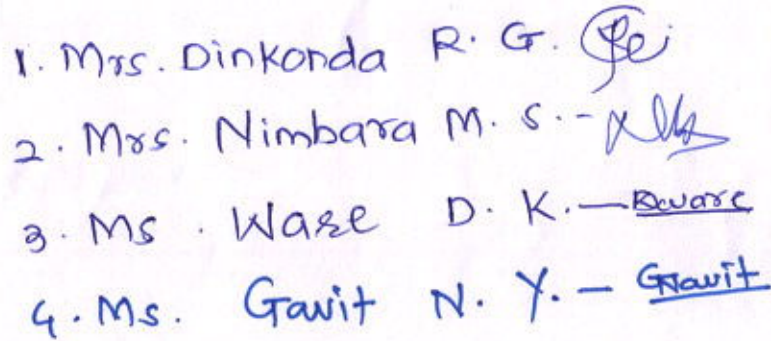 1. Mrs. Dinkonda R. G.
2. Mrs. Nimbara M. S. -
3. Ms. Ware D. K. —
4. Ms. Gavit N. Y. — Gavit